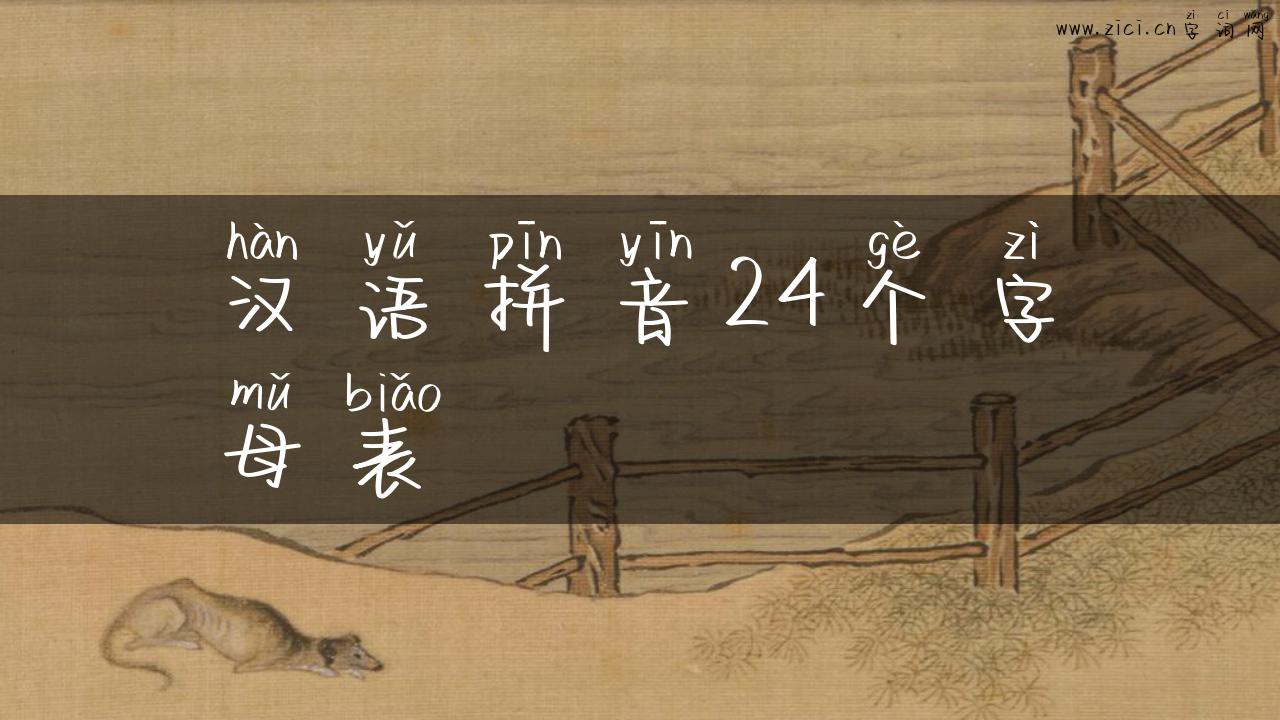 zì cí wǎng
www.zici.cn 字词网
hàn yǔ pīn yīn gè zì
汉语拼音24个字
mǔ biǎo
母表